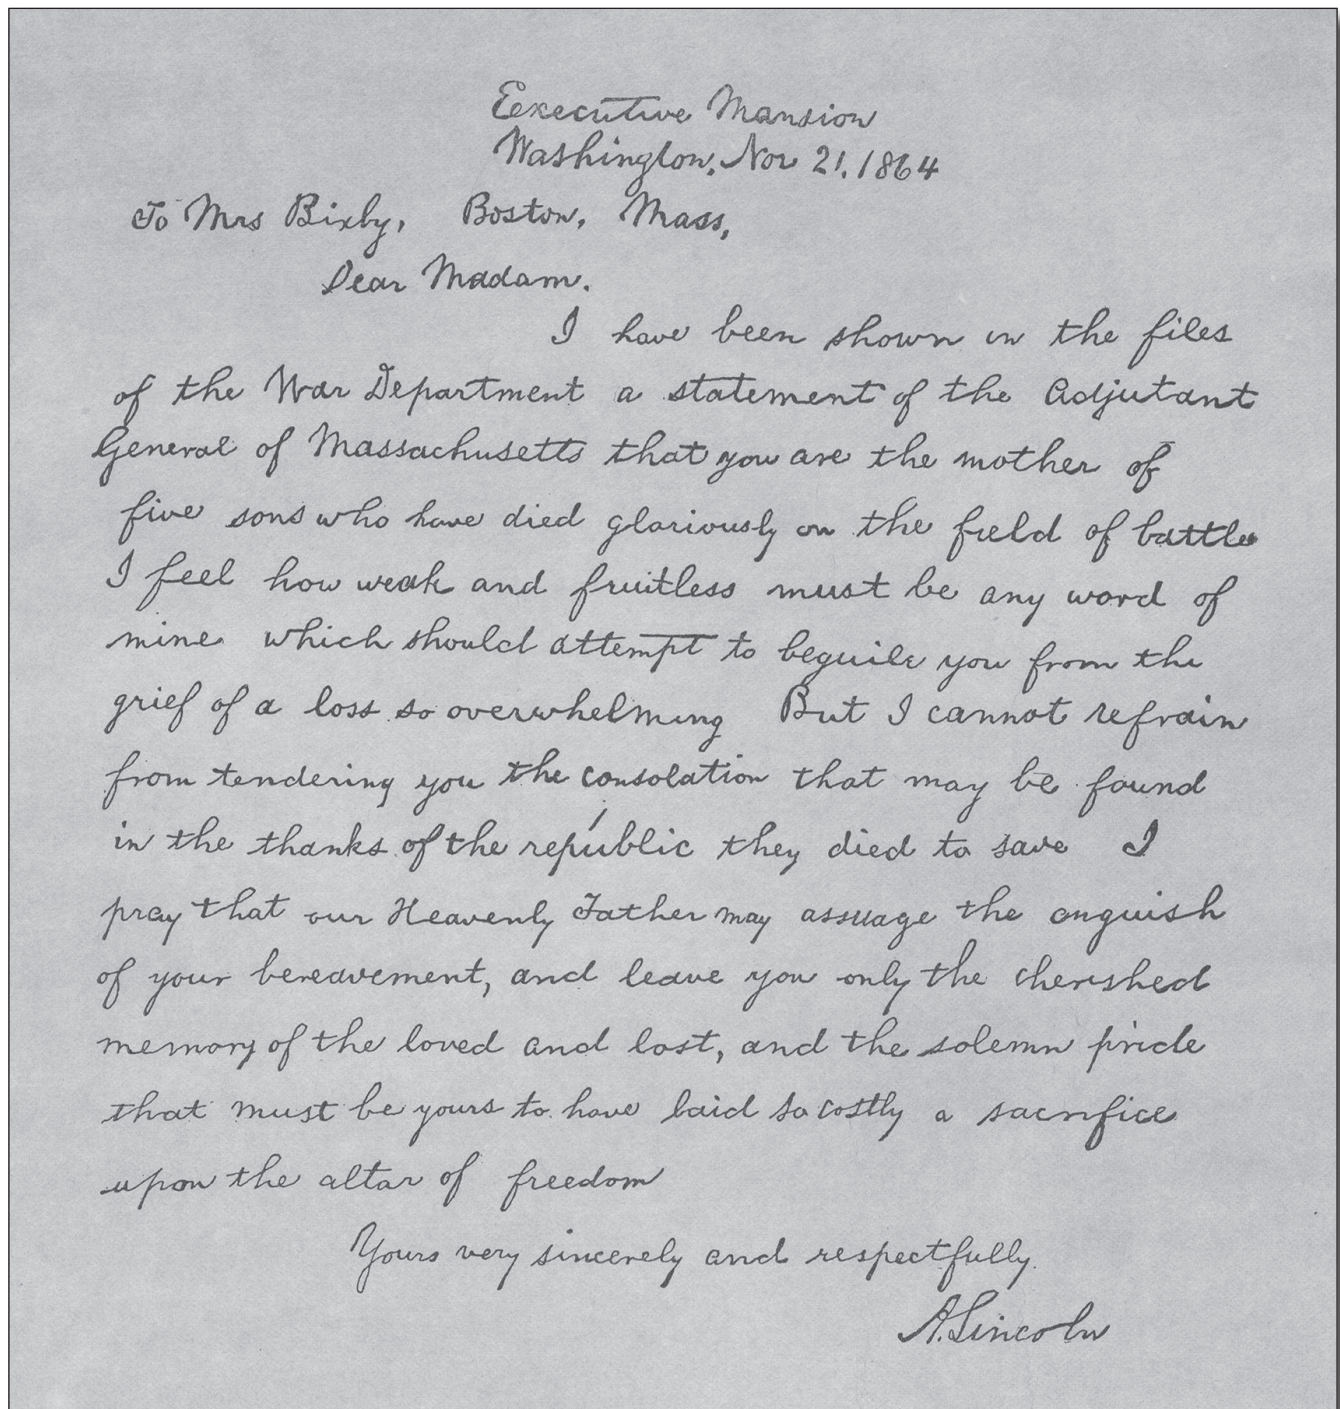 Executive Mansion
Washington, Nov 21, 1864
To Mrs Bixby, Boston, Mass,
Dear Madam.
I have been shown in the files
of the War Department a statement of the Adjutant
General of Massachusetts that you are the mother of
five sons who have died gloriously on the field of battle
I feel how weak and fruitless must be any word of
mine which should attempt to beguile you from the
grief of a loss so overwhelming But I cannot refrain
from tendering you the consolation that may be found
in the thanks of the republic they died to save I
pray that our Heavenly Father may assuage the anguish
of your bereavement, and leave you only the cherished
memory of the loved and lost, and the solemn pride
that must be yours to have laid so costly a sacrifice
upon the altar of freedom
Yours very sincerely and respectfully.
A. Lincoln